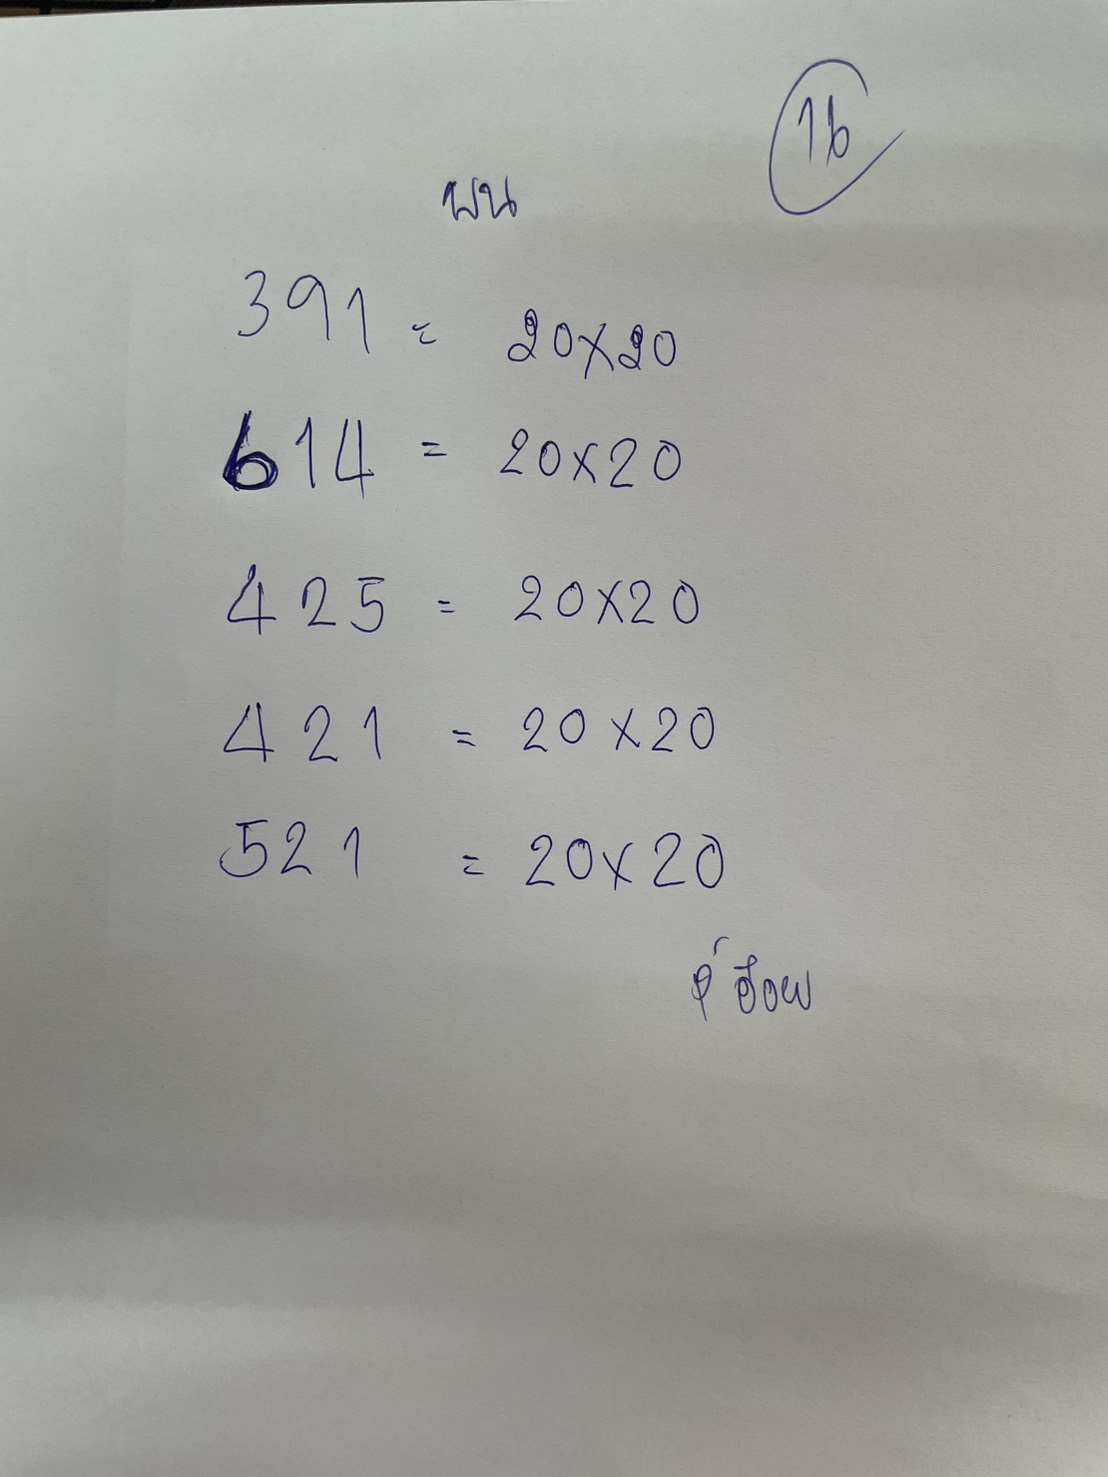 16
บน
391 = 20x20
614 = 20x20
425 = 20x20
421 = 20x20
521 = 20x20